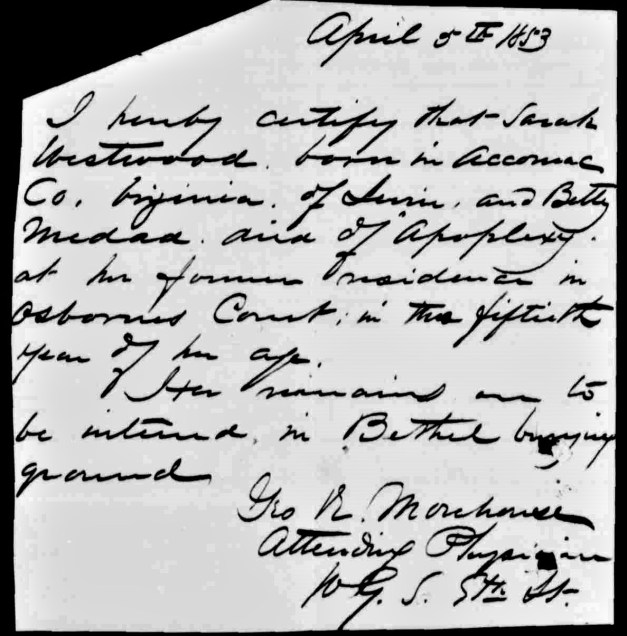 April 5th 1853
I hereby certify that Sarah
Westwood. born in Accomac
Co. Virginia. of and Betty
Medad. died of "Apoplexy.
at her former residence in
Osbornes Court; in the fiftieth
year of her age.
Her remains are to
be interred, in Bethel burying
ground
Geo R. Morehouse
Attending Physician
S. 5th St.